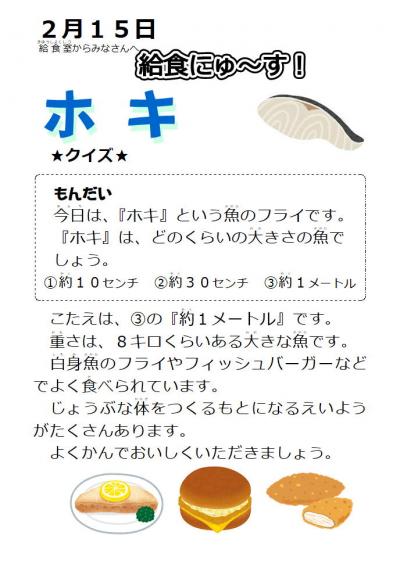 ２月１５日
給食室からみなさんへ
給食にゅ～す！
ホキ
★クイズ★
もんだい
今日は、『ホキ』という魚のフライです。
『ホキ』は、どのくらいの大きさの魚で
しょう。
①約１０センチ　②約３０センチ　③約１メートル
こたえは、③の『約１メートル』です。
重さは、８キロくらいある大きな魚です。
白身魚のフライやフィッシュバーガーなど
でよく食べられています。
じょうぶな体をつくるもとになるえいよう
がたくさんあります。
よくかんでおいしくいただきましょう。